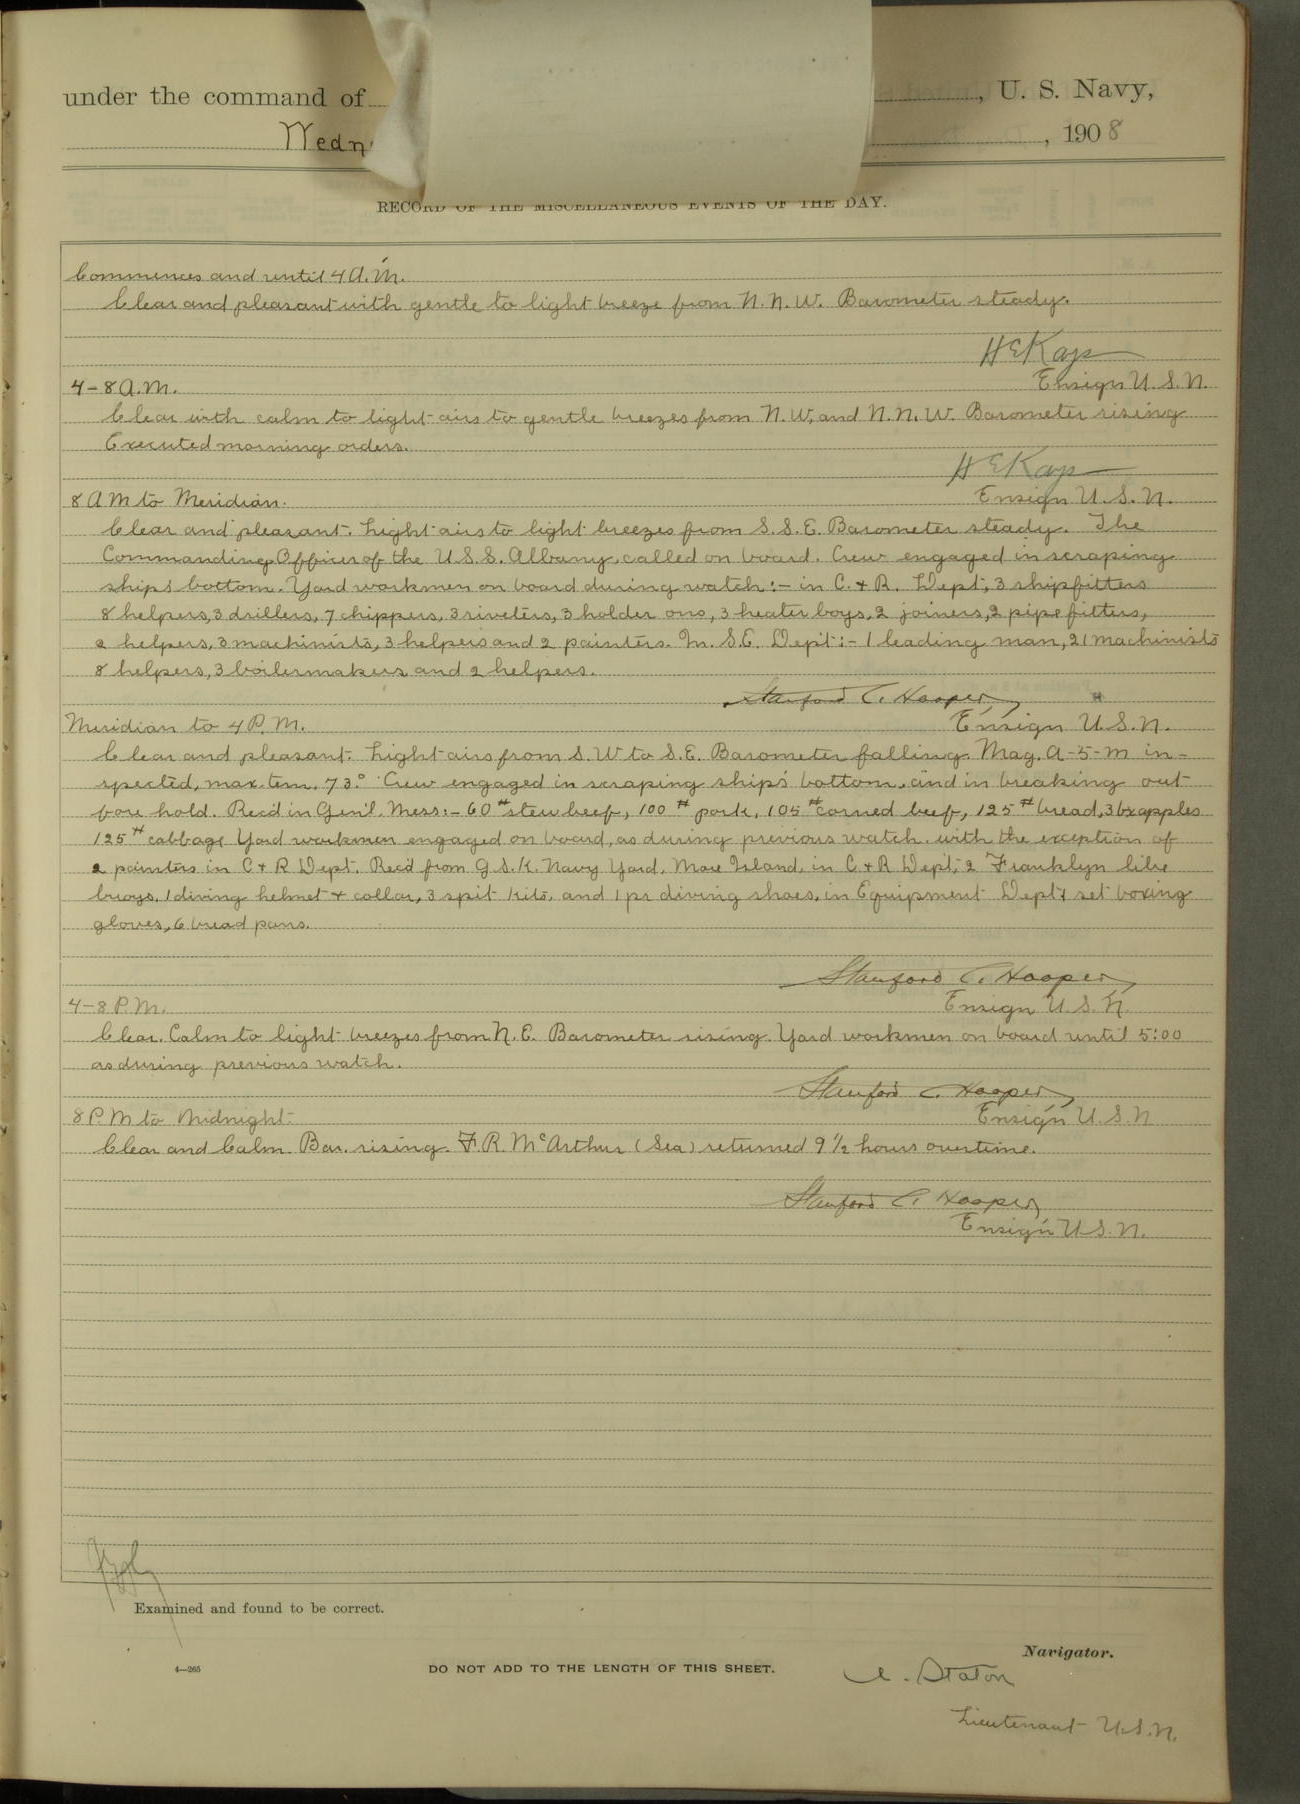 under the command of , U. S. Navy,
Wedn , 1908
RECORD OF THE MISCELLANEOUS EVENTS OF THE DAY.
Commences and until 4 A.M.
Clear and pleasant with gentle to light breeze from N.N.W. Barometer steady.
H E Kays
Ensign U.S.N.
4-8 A.M.
Clear with calm to light airs to gentle breezes from N.W. and N.N.W. Barometer rising
Executed morning orders.
H E Kays
Ensign U.S.N.
8 A M to Meridian.
Clear and pleasant. Light airs to light breezes from S.S.E. Barometer steady. The
Commanding Officer of the U.S.S. Albany, called on board. Crew engaged in scraping
ship's bottom. Yard workmen on board during watch:- in C. & R. Dept; 3 shipfitters
8 helpers, 3 drillers, 7 chippers, 3 riveters, 3 holder ons, 3 heater boys, 2 joiners, 2 pipe fitters,
2 helpers, 3 machinists, 3 helpers and 2 painters. In S.E. Dept:- 1 leading man, 21 machinists
8 helpers, 3 boilermakers and 2 helpers.
Stanford C. Hooper,
Ensign U.S.N.
Meridian to 4 P.M.
Clear and pleasant. Light airs from S.W to S.E. Barometer falling. Mag. A-5-M in-
spected, max. tem. 73.° Crew engaged in scraping ships' bottom, and in breaking out
fore hold. Rec'd in Gen'l. Mess:- 60# stew beef, 100# pork, 105# corned beef, 125# bread, 3 bx apples
125# cabbage Yard workmen engaged on board, as during previous watch. with the exception of
2 painters in C & R Dept. Rec'd from G.S.K. Navy Yard, Mare Island, in C & R Dept; 2 Franklyn life
buoys, 1 diving helmet & collar, 3 spit kits, and 1 pr diving shoes, in Equipment Dept; 1 set boxing
gloves, 6 bread pans.
Stanford C. Hooper,
Ensign U.S.N.
4-8 P.M.
Clear. Calm to light breezes from N.E. Barometer rising. Yard workmen on board until 5:00
as during previous watch.
Stanford C. Hooper,
Ensign U.S.N
8 P.M to Midnight.
Clear and Calm. Bar. rising. F.R. McArthur (Sea) returned 9 1/2 hours overtime.
Stanford C. Hooper,
Ensign U.S.N.
Examined and found to be correct.
Navigator.
4—265
DO NOT ADD TO THE LENGTH OF THIS SHEET.
A. Staton
Lieutenant U.S.N.